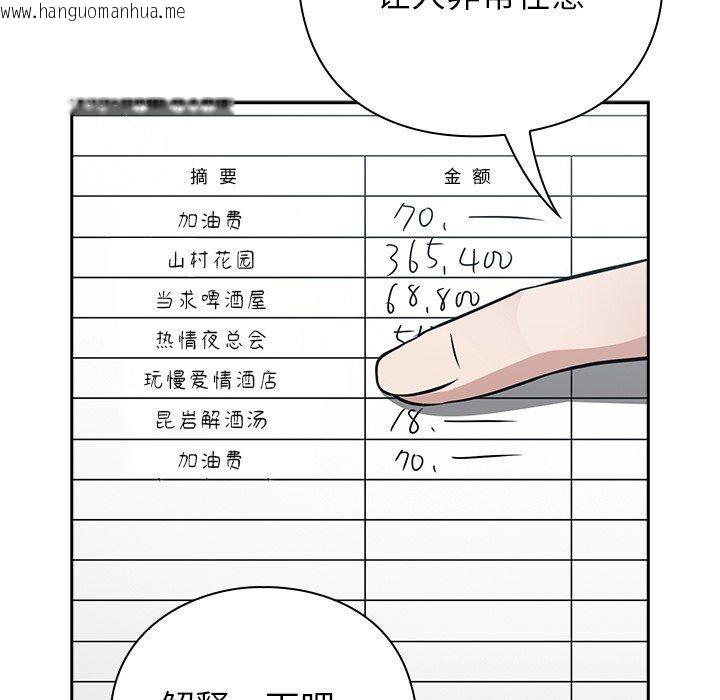 www.hanguomanhua.me
让人非常在意
摘要 金额
加油费 70.—
山村花园 365,400
当求啤酒屋 68,800
热情夜总会
玩慢爱情酒店
昆岩解酒汤 18.—
加油费 70.—
解释一下吧